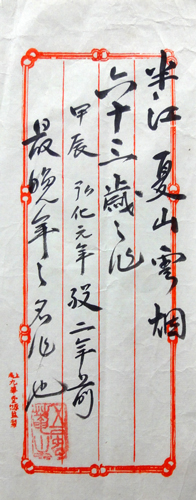 半江 夏山雲烟
六十三歳之作
甲辰 弘化元年 歿二年前
最晩年之名作也